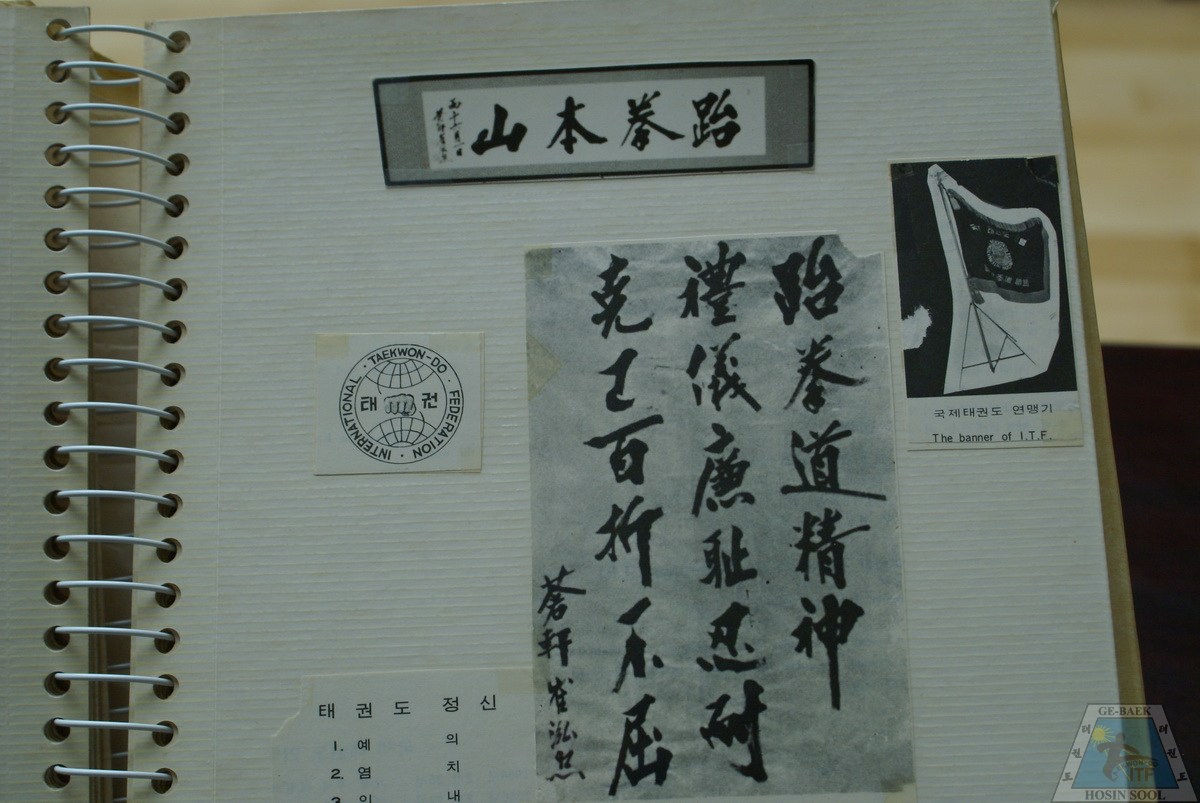 山本拳跆
INTERNATIONAL · TAEKWON-DO · FEDERATION ·
태 권
跆拳道精神
禮儀廉恥忍耐
克己百折不屈
蒼軒 崔泓熙
국제태권도 연맹기
The banner of I.T.F.
태 권 도 정 신
1. 예 의
2. 염 치
3. 인 내
GE-BAEK
태권도
태권도
ITF
HOSIN SOOL